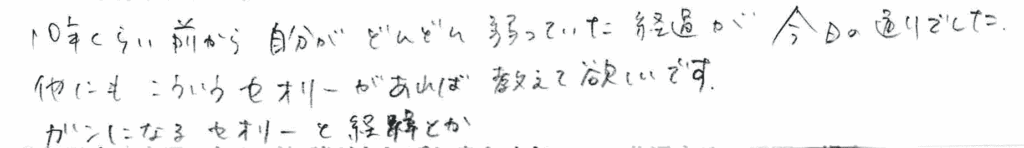 10年くらい前から自分がどんどん弱っていた経過が今日の通りでした.
他にもこういうセオリーがあれば教えて欲しいです.
ガンになるセオリーと経緯とか